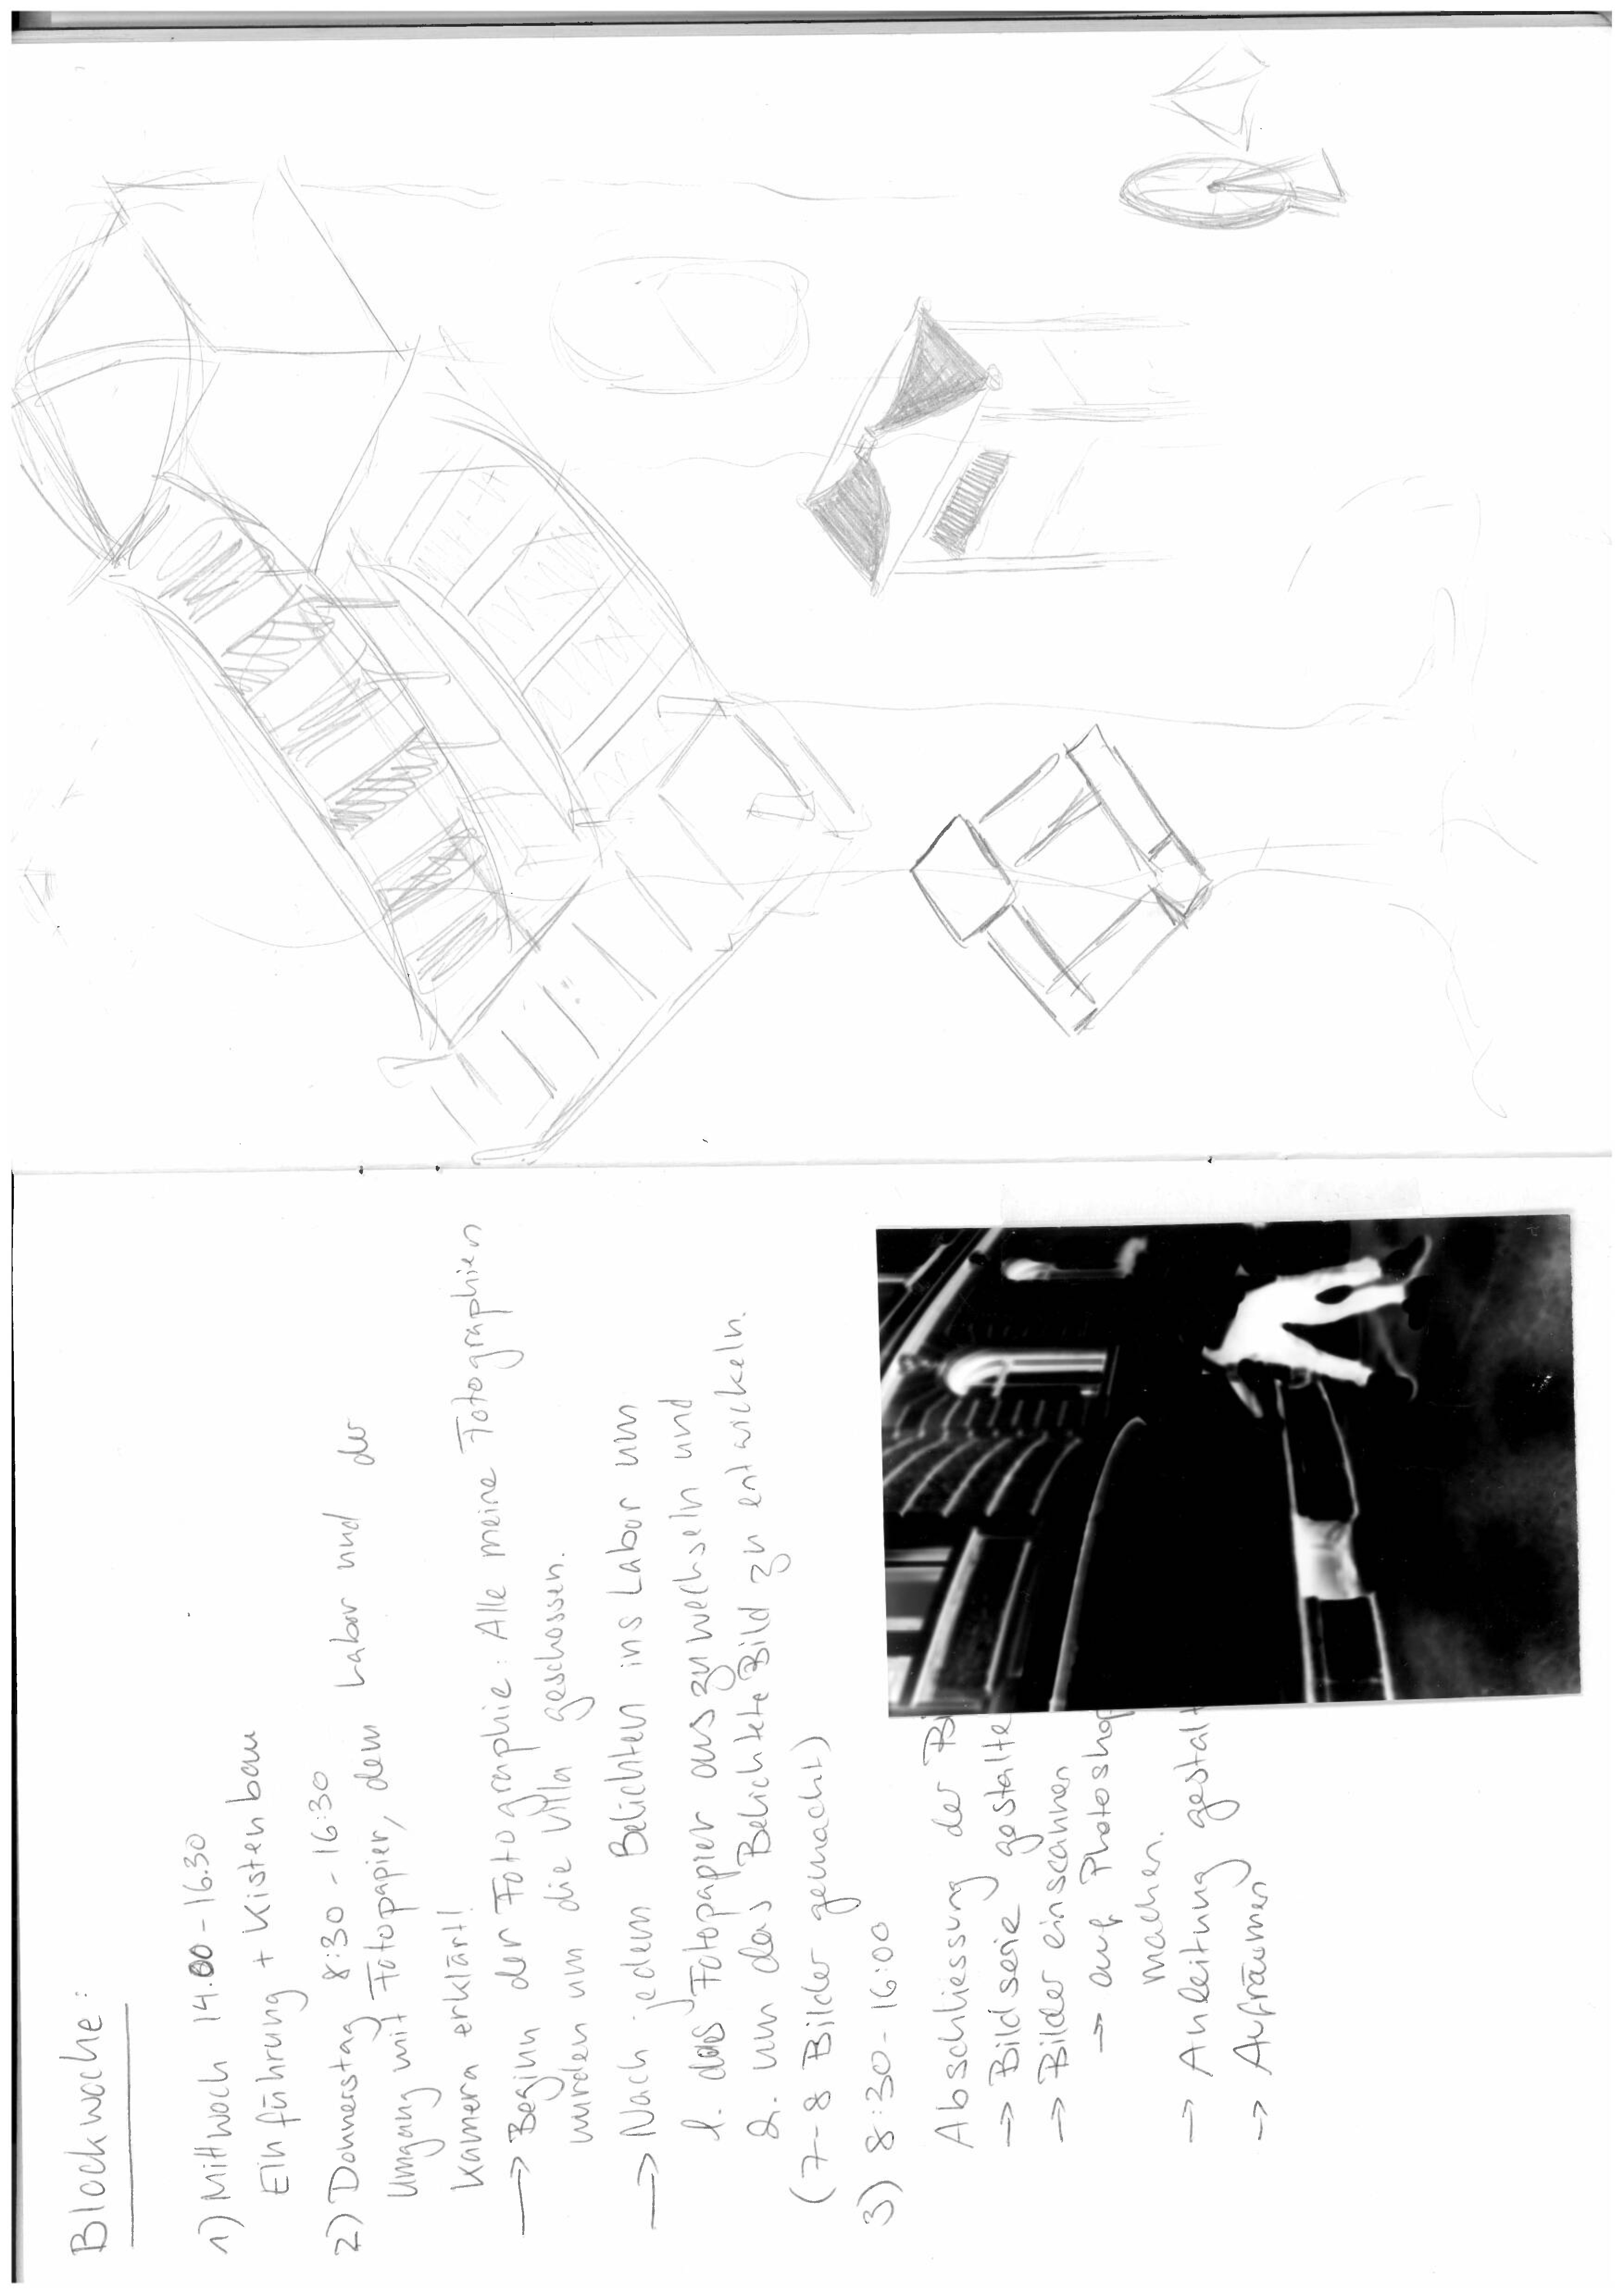 Blockwoche:
1) Mittwoch 14.00 - 16.30
Einführung + Kistenbau
2) Donnerstag 8:30 - 16:30
Umgang mit Fotopapier, dem Labor und der
Kamera erklärt!
→ Beginn der Fotographie: Alle meine Fotographien
wurden um die Villa geschossen.
→ Nach jedem Belichten ins Labor um
1. das Fotopapier aus zu wechseln und
2. um das Belichtete Bild zu entwickeln.
(7-8 Bilder gemacht)
3) 8:30 - 16:00
Abschliessung der Bi
→ Bildserie gestalte
→ Bilder einscannen
→ auf Photoshop
machen.
→ Anleitung gestalt
→ Aufräumen